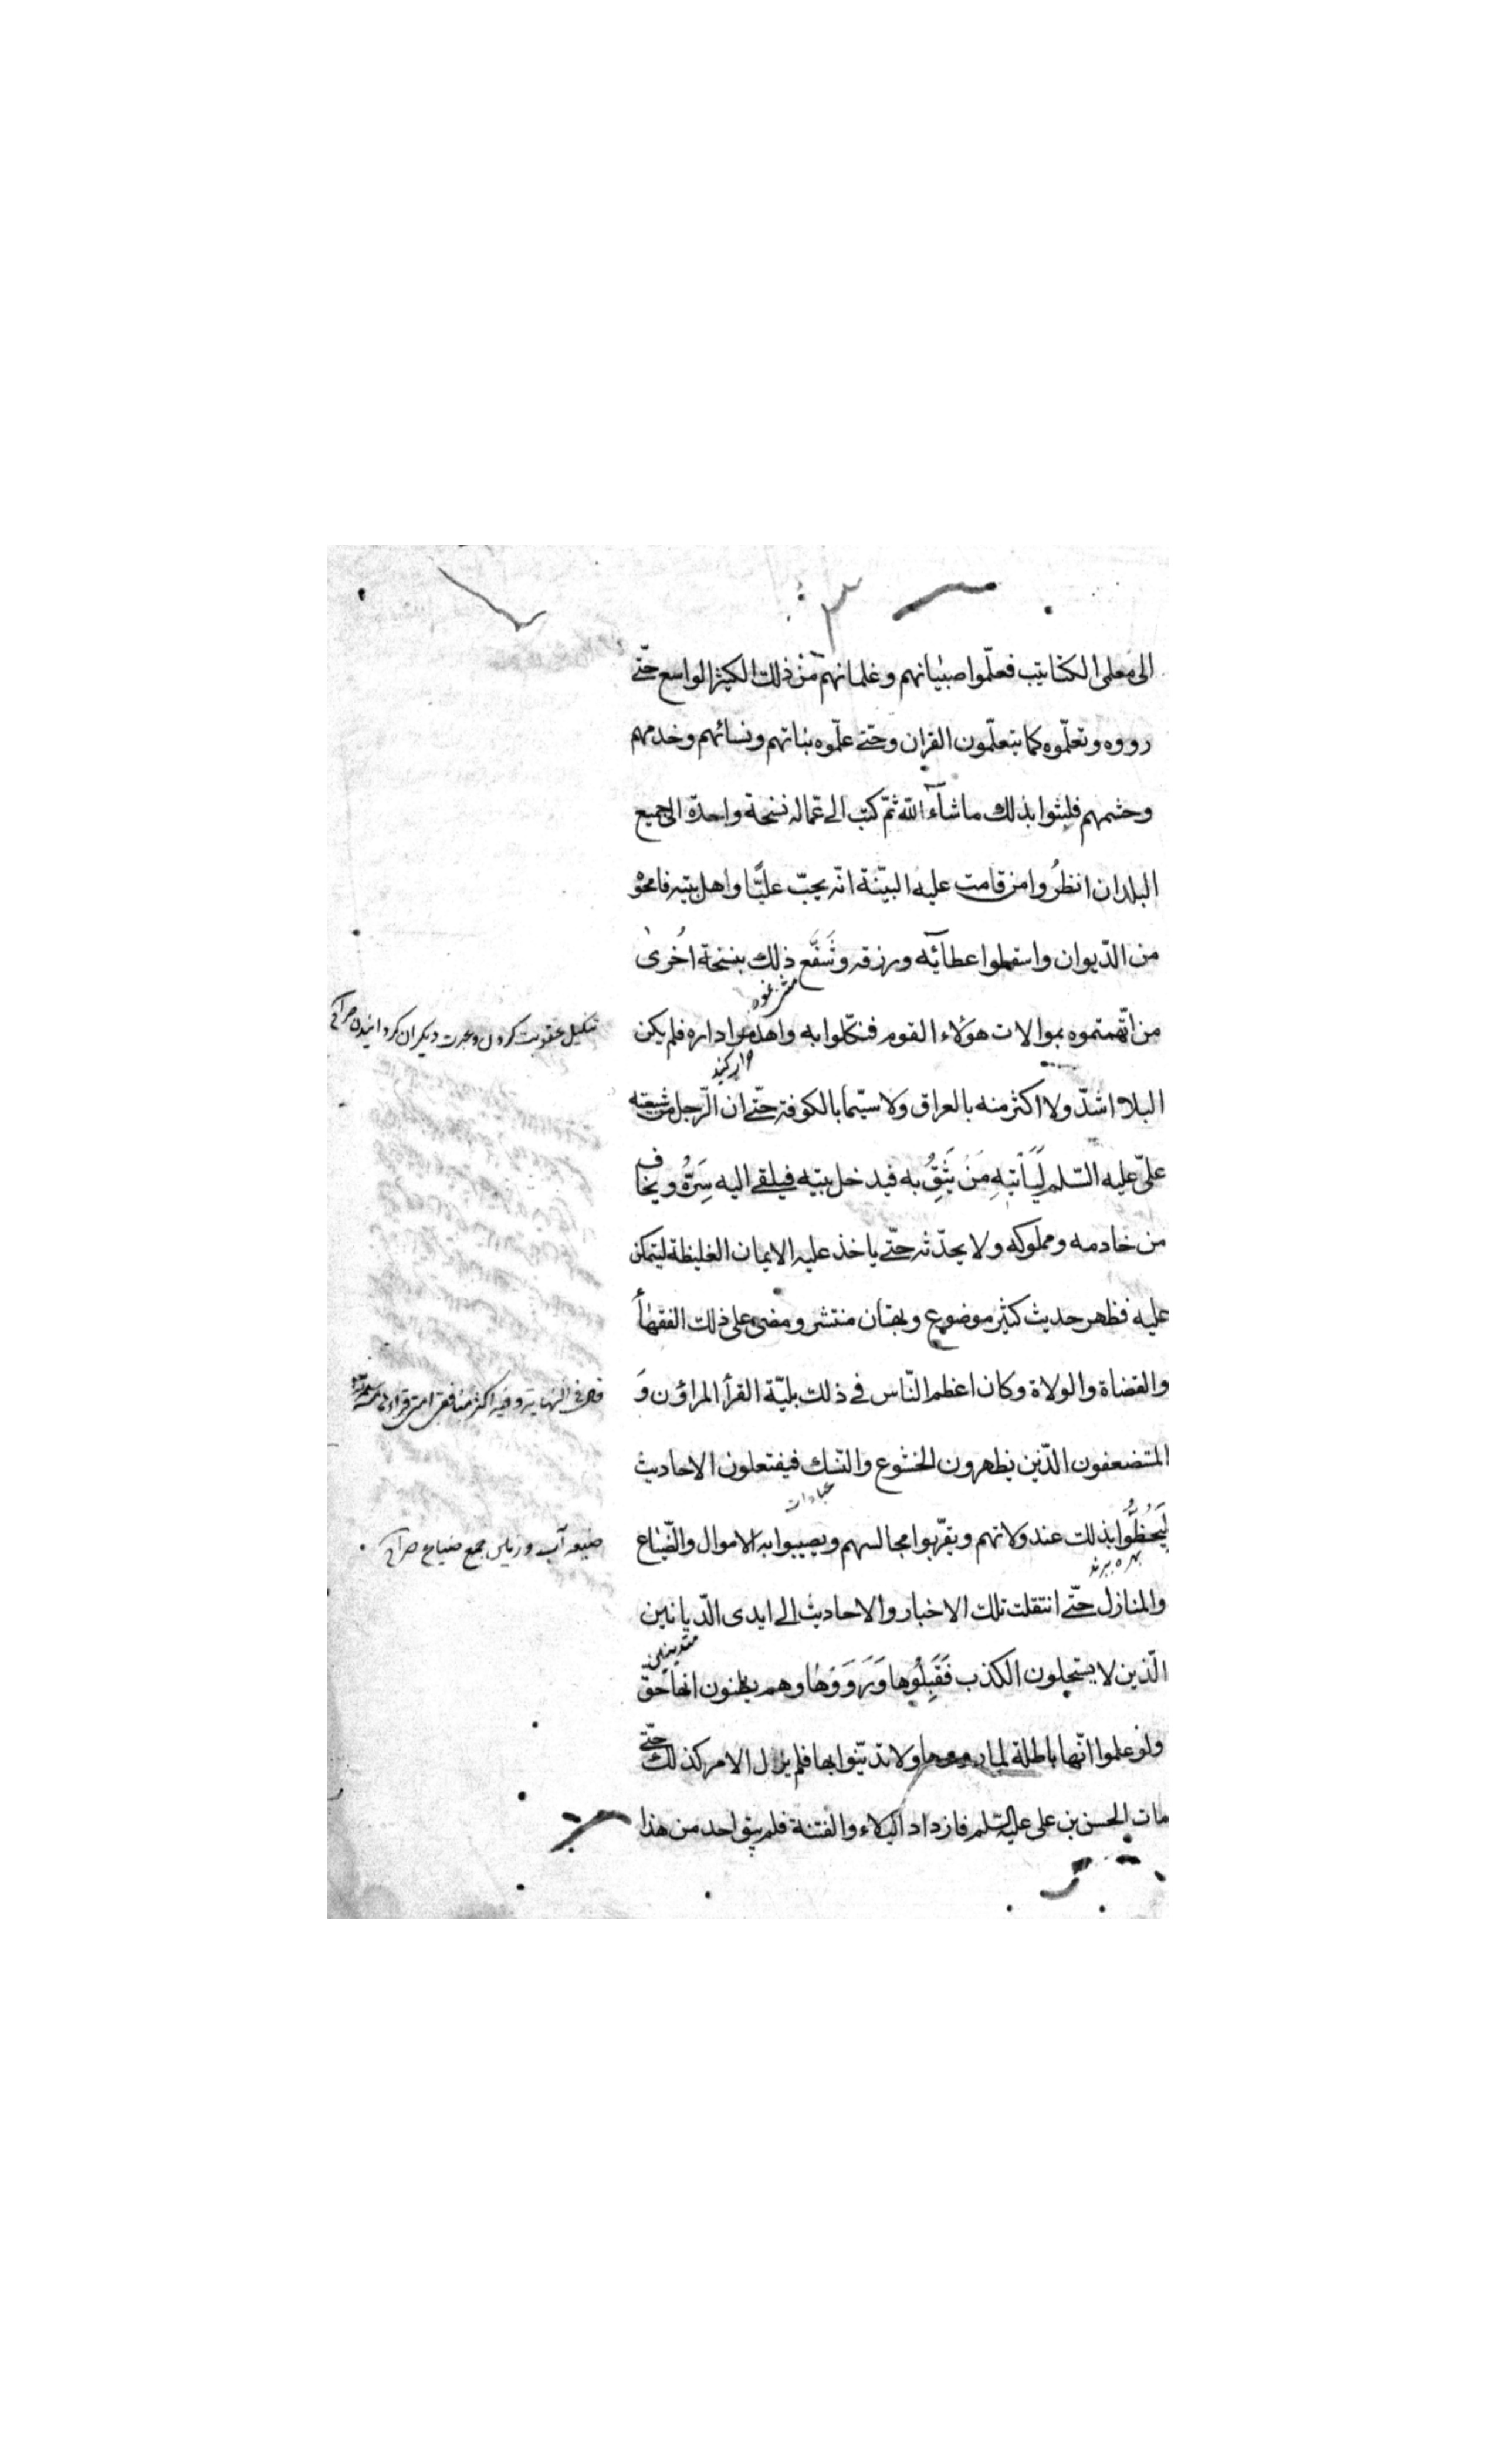 ٣
الى معلمى الكتاتيب فعلّموا صبيانهم وغلمانهم من ذلك الكثير الواسع حتّى
رووه وتعلّموه كما يتعلّمون القران وحتى علّموه بناتهم ونسائهم وخدمهم
وحشمهم فلبثوا بذلك ما شآء الله ثمّ كتب الى عمّاله نسخة واحدة الى جميع
البلدان انظُروا من قامت عليه البيّنة انّه يحبّ عليًّا واهل بيته فامحوْ
من الدّيوان واسقطوا عطائه ورزقه وشَفّع ذلك بنسخة اُخرىٰ
من اتّهمتموه بموالات هؤلاء القوم فنكّلوا به واهدموا داره فلم يكن
تنكيل عقوبت كردن وعبرت ديكران كردانيدن صراح
البلاء اشدّ ولا اكثر منه بالعراق ولا سيّما بالكوفة حتّى ان الرّجل من شيعته
علىّ عليه السّلم لَيَأتيهِ مَنْ يَثِقُ به فيدخل بيته فيلقى اليه سِرَّهُ ويخاف
من خادمه ومملوكه ولا يحدّثه حتّى ياخذ عليه الايمان الغليظة ليتمكن
عليه فظهر حديث كثير موضوع وبهتان منتشر ومضى على ذلك الفقهاأ
والقضاة والولاة وكان اعظم النّاس فى ذلك بليّة القرأ المراؤن وَ
قال فى النهاية وفيه اكثر منافقى امتى قراءها
المتضعفون الذّين يظهرون الخشوع والنّسك فيفتعلون الاحاديث
عبادات
لِيَحُظُّوا بذلك عند ولاتهم ويقرّبوا مجالسهم ويصيبوا به الاموال والضّياع
بهره برند
ضيعه آب وزمين جمع ضياع صراح
والمنازل حتّى انتقلت تلك الاخبار والاحاديث الى ايدى الدّيانين
متدينين
الّذين لا يستحلون الكذب فَقَبِلُوها وَرَوَوْهٰا وهم يظنون انها حقّ
ولو علموا انّها باطلة لما رووها ولا تديّنوا بها فلم يزل الامر كذلك حتّى
مات الحسن بن على عليه السّلم فازداد البلاء والفتنة فلم يبق احد من هذا